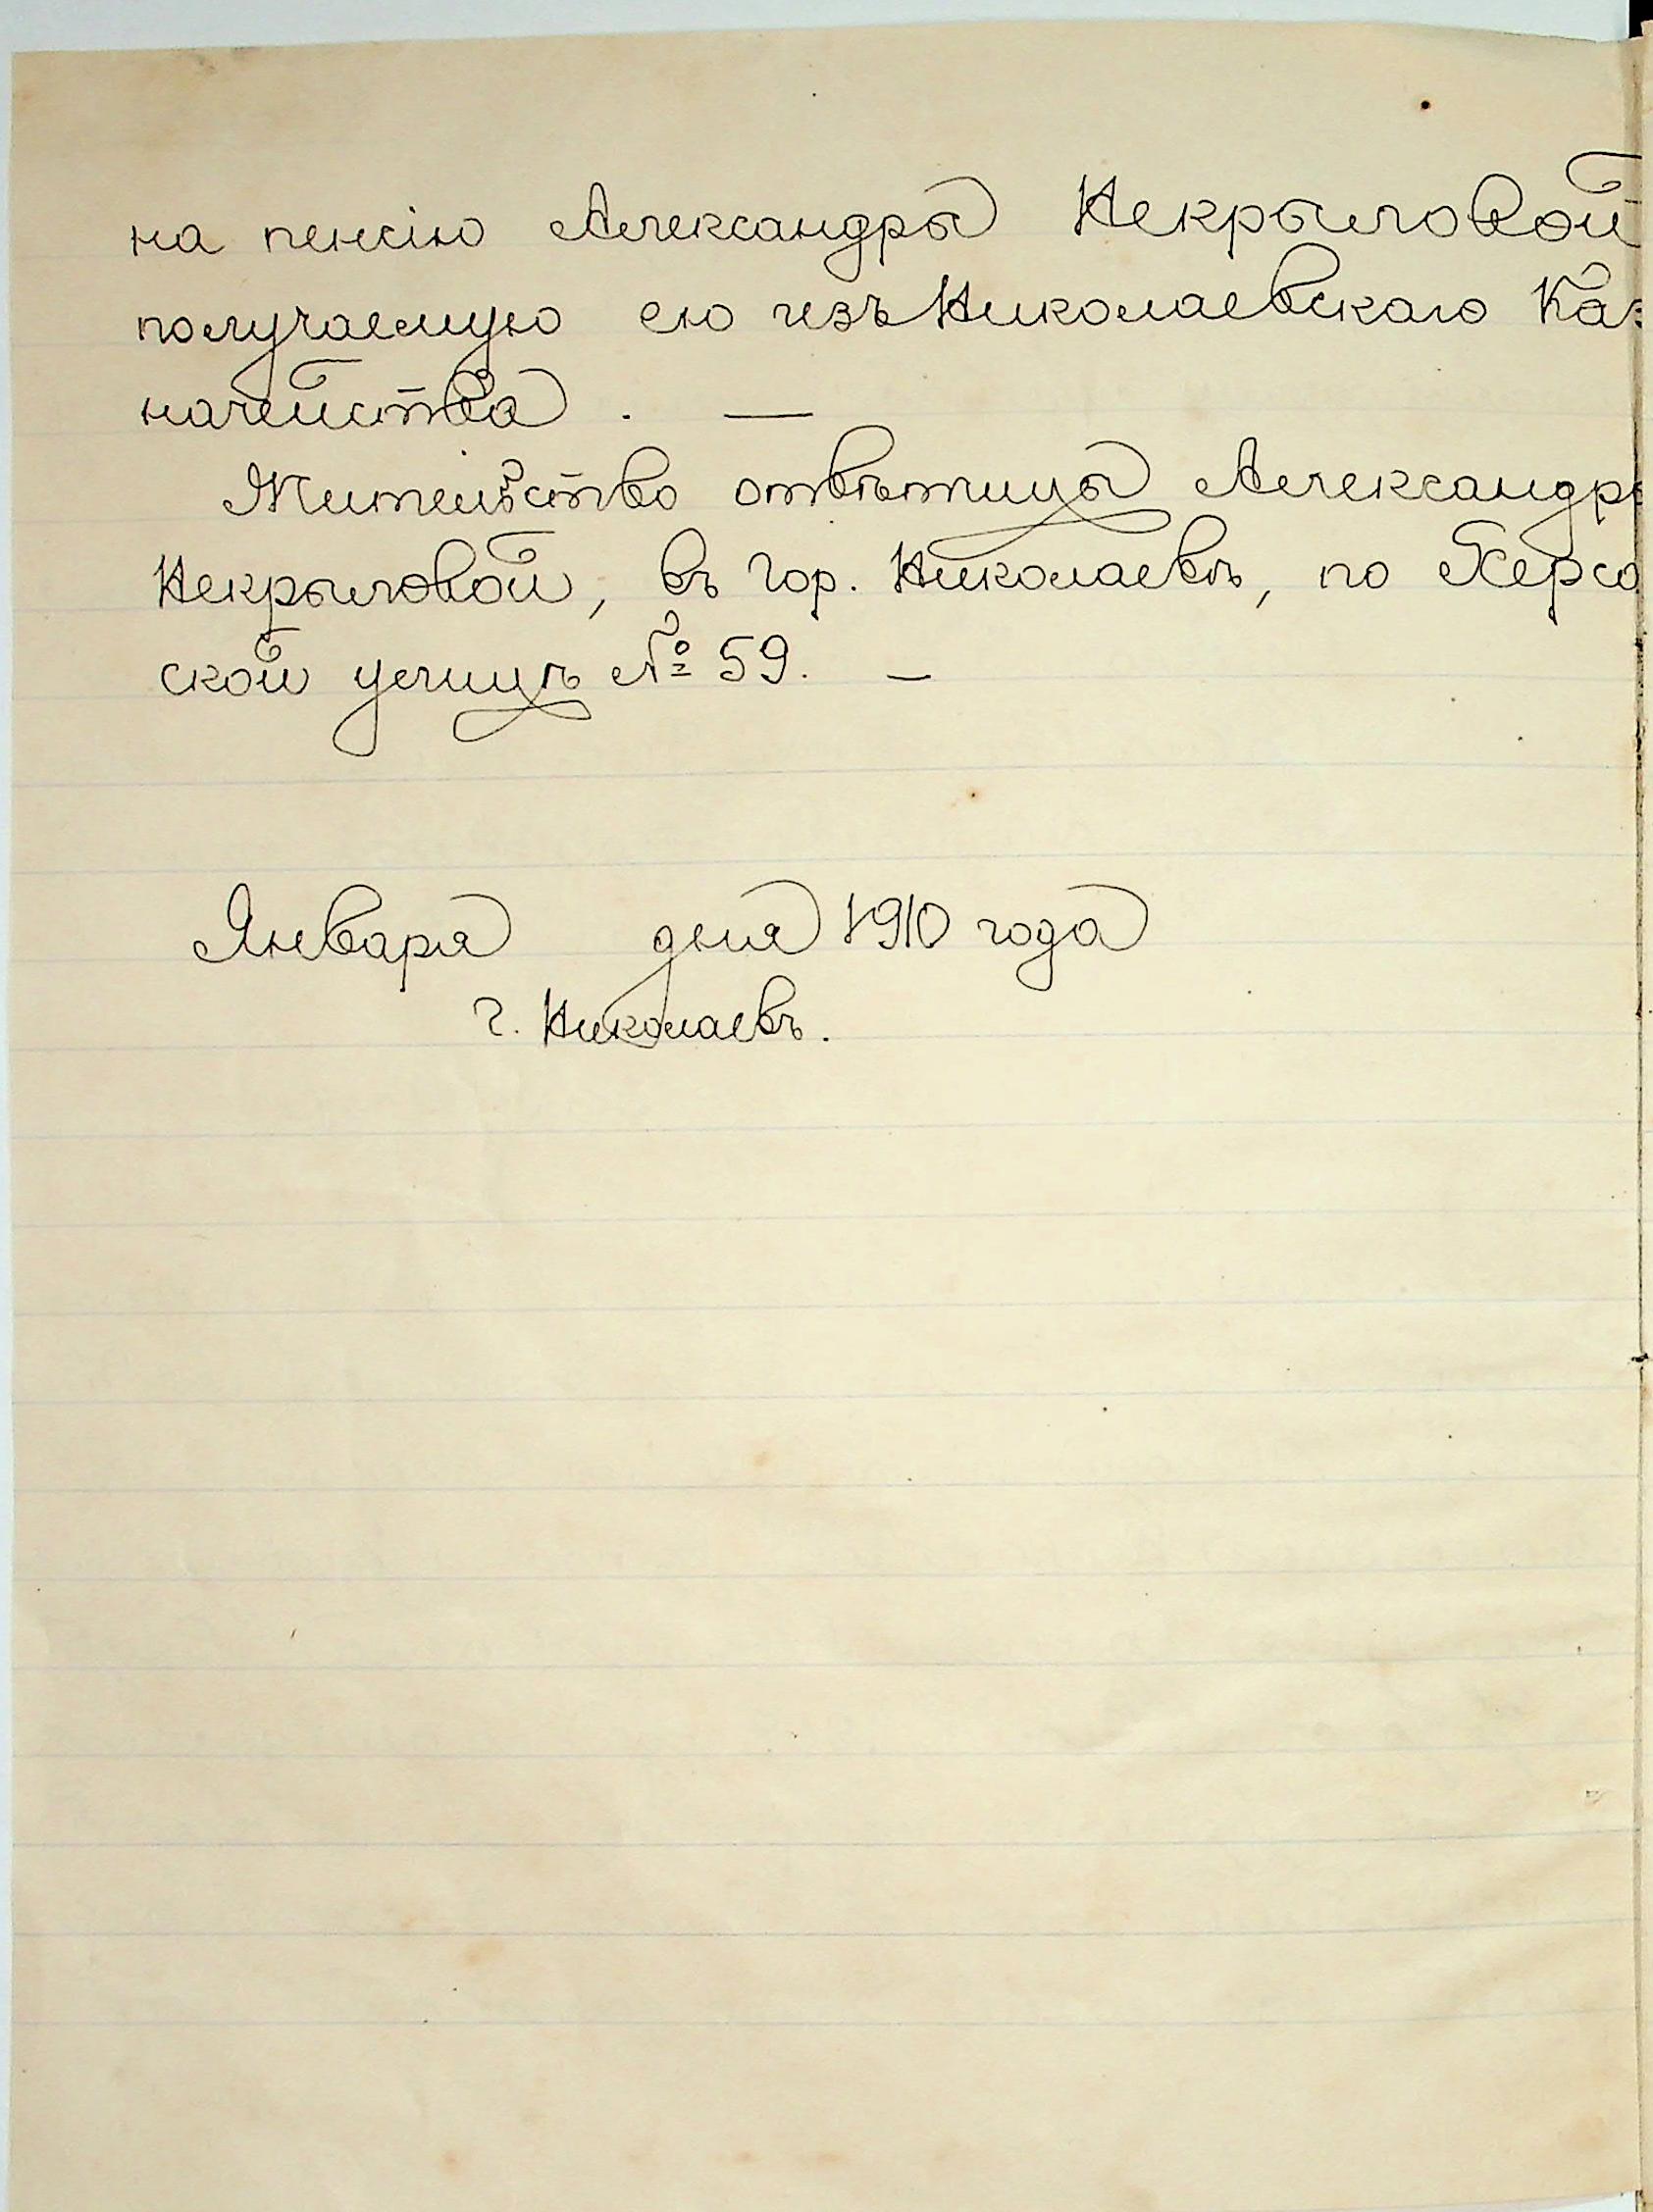 на пенсію Александры Некрыловой
получаемую ею изъ Николаевскаго Каз
начейства. —
Жительство отвѣтчицы Александры
Некрыловой, въ гор. Николаевѣ, по Херсо
ской улицѣ № 59. —
Января дня 1910 года
г. Николаевъ.